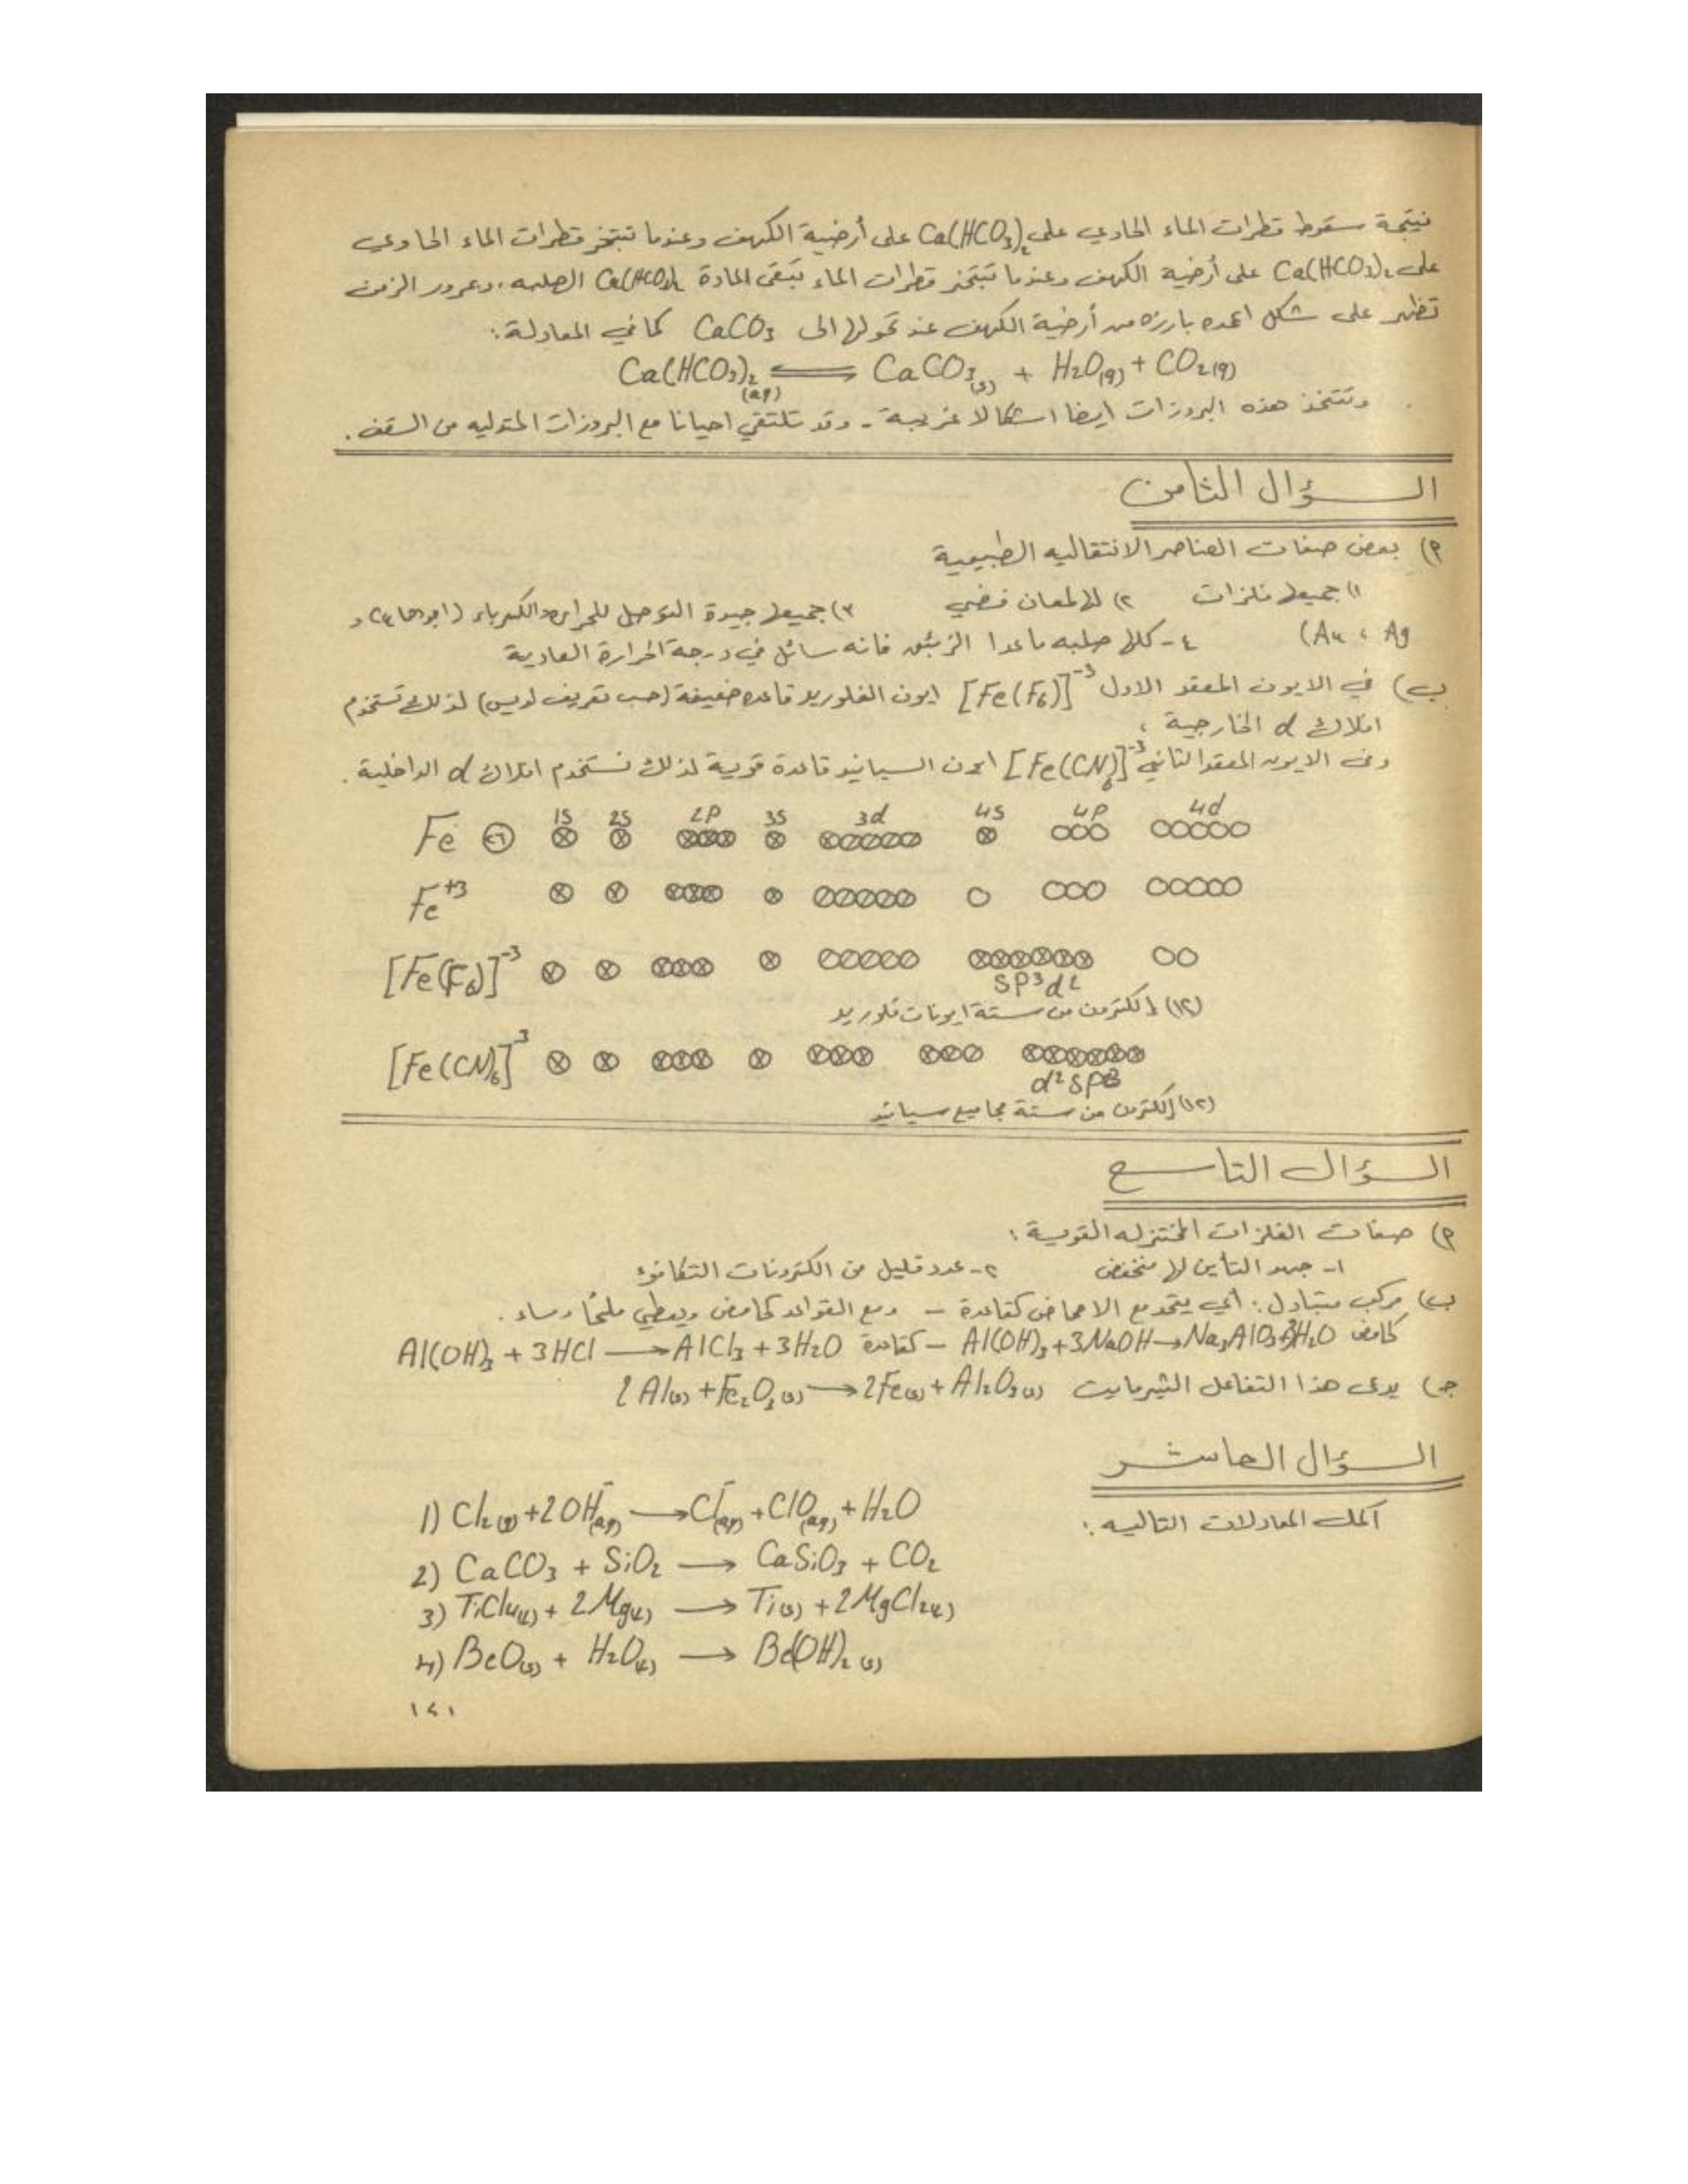 نتيجة سقوط قطرات الماء الحاوي على Ca(HCO3)2 على أرضية الكهف وعندما تتبخر قطرات الماء الحاوي
على Ca(HCO3)2 على أرضية الكهف وعندما تتبخر قطرات الماء تبقى المادة Ca(HCO3)2 الصلبه، وبمرور الزمن
تظهر على شكل اعمده بارزه من أرضية الكهف عند تحولها الى CaCO3 كما في المعادلة:
Ca(HCO3)2(aq) ⇌ CaCO3(s) + H2O(g) + CO2(g)
وتتخذ هذه البروزات ايضا اشكالا غريبة - وقد تلتقي احيانا مع البروزات المتدليه من السقف.
السؤال الثامن
م) بعض صفات العناصر الانتقاليه الطبيعية
١) جميعها فلزات ٢) لها لمعان فضي ٣) جميعها جيدة التوصيل للحراره والكهرباء (اجودها Cu و
Ag ، Au)
٤- كلها صلبه ماعدا الزئبق فانه سائل في درجة الحرارة العادية
ب) في الايون المعقد الاول [Fe(F6)]-3 ايون الفلوريد قاعده ضعيفة (حسب تعريف لويس) لذلك تستخدم
افلاك d الخارجية ،
وفي الايون المعقد الثاني [Fe(CN)6]-3 ايون السيانيد قاعدة قوية لذلك نستخدم افلاك d الداخلية.
1S 2S 2P 3S 3d 4S 4P 4d
Fe ٢٦
Fe+3
[Fe(F6)]-3
SP3d2
(١٢) إلكترون من ستة ايونات فلوريد
[Fe(CN)6]3
d2SP3
(١٢) إلكترون من ستة مجاميع سيانيد
السؤال التاسع
م) صفات الفلزات المختزله القوية:
١- جهد التأين لها منخفض ٢- عدد قليل من الكترونات التكافؤ
ب) مركب متبادل: أي يتحد مع الاحماض كقاعدة - ومع القواعد كحامض ويعطي ملحًا وماء.
كحامض Al(OH)3+3NaOH→Na3AlO3+3H2O - كقاعدة Al(OH)3+3HCl→AlCl3+3H2O
جـ) يدعى هذا التفاعل الثيرمايت 2Al(s)+Fe2O3(s)→2Fe(s)+Al2O3(s)
السؤال العاشر
أكمل المعادلات التاليه:
1) Cl2(g)+2OH-(aq)→Cl-(aq)+ClO-(aq)+H2O
2) CaCO3 + SiO2 → CaSiO3 + CO2
3) TiCl4(l) + 2Mg(l) → Ti(s) + 2MgCl2(l)
4) BeO(s) + H2O(l) → Be(OH)2(s)
١٤١